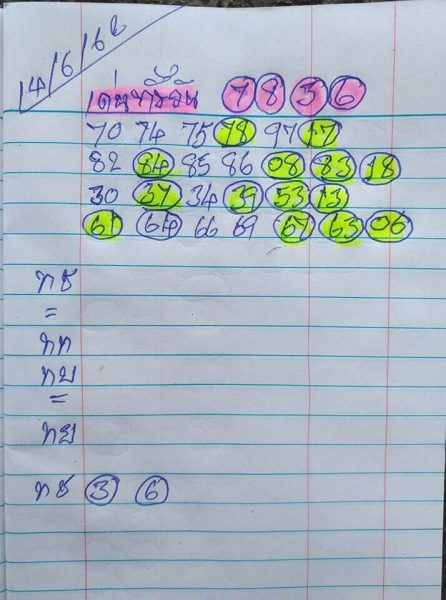 14/6/62
เด่นทั้งวัน 7 8 3 6
70 74 75 78 97 17
82 84 85 86 08 83 18
30 37 34 39 53 13
61 64 66 69 67 63 06
=
=
3 6